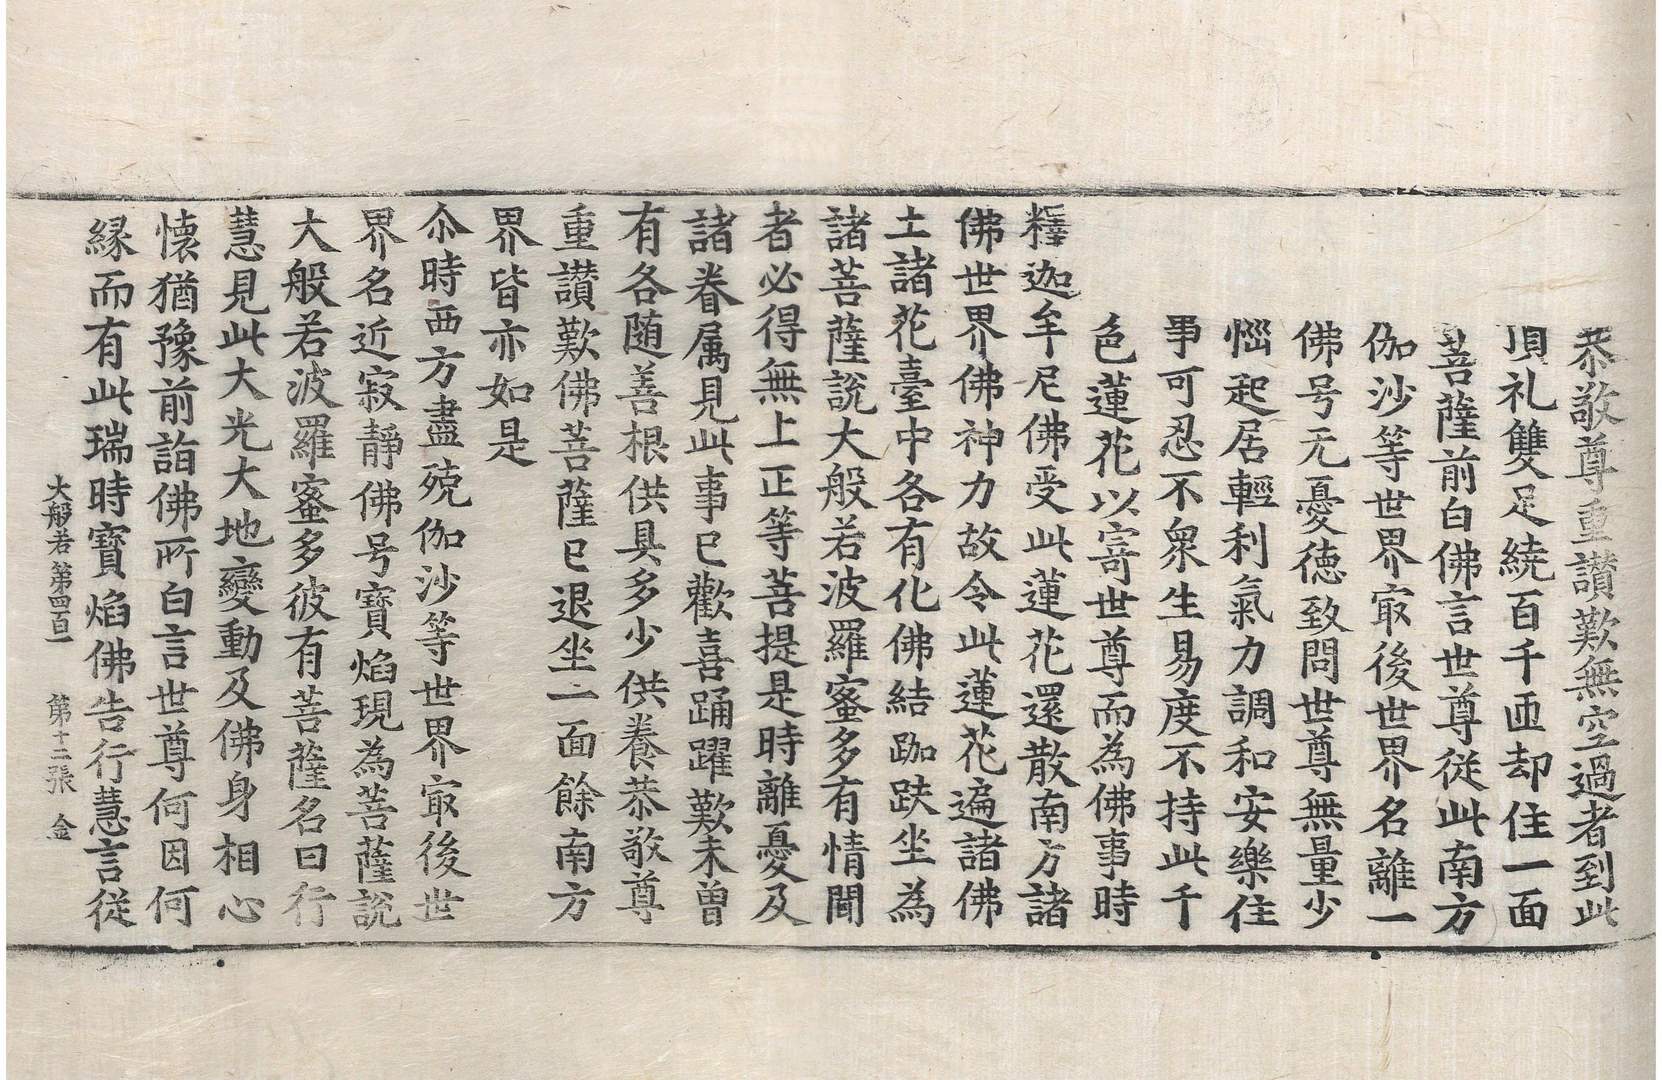 恭敬尊重讃歎無空過者到此
頂礼雙足繞百千匝却住一面
菩薩前白佛言世尊從此南方
伽沙等世界㝡後世界名離一
佛号无憂德致問世尊無量少
惱起居輕利氣力調和安樂住
事可忍不衆生易度不持此千
色蓮花以寄世尊而為佛事時
釋迦牟尼佛受此蓮花還散南方諸
佛世界佛神力故令此蓮花遍諸佛
土諸花臺中各有化佛結跏趺坐為
諸菩薩說大般若波羅蜜多有情聞
者必得無上正等菩提是時離憂及
諸眷属見此事已歡喜踊躍歎未曾
有各随善根供具多少供養恭敬尊
重讃歎佛菩薩已退坐一面餘南方
界皆亦如是
尒時西方盡殑伽沙等世界㝡後世
界名近寂靜佛号寶焰現為菩薩說
大般若波羅蜜多彼有菩薩名曰行
慧見此大光大地變動及佛身相心
懐猶豫前詣佛所白言世尊何因何
縁而有此瑞時寶焰佛告行慧言從
大般若第四百一 第十二張 金